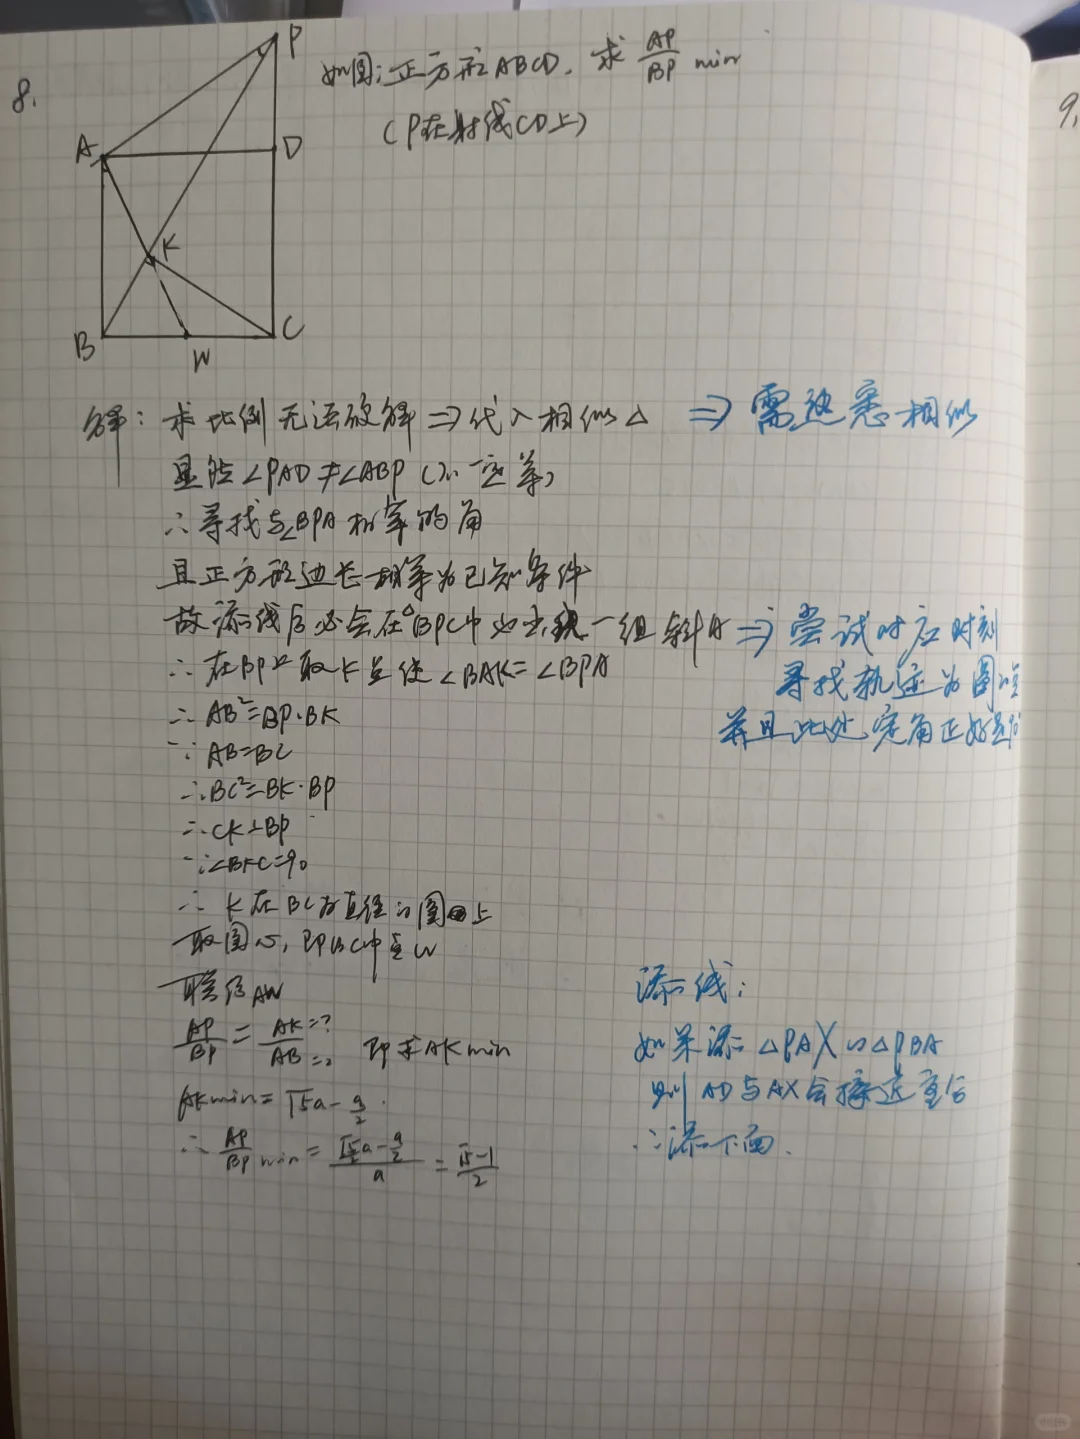 8.
P
A
D
K
B
W
C
如图:正方形ABCD. 求 AP/BP min
(P在射线CD上)
9.
解: 求比例无法放缩 ⇒ 代入相似△ ⇒ 需熟悉相似
显然∠PAD≠∠ABP (不一定等)
∴寻找与∠BPA相等的角
且正方形边长相等为已知条件
故添线后必会在△BPC中 一组斜A ⇒ 尝试时应时刻
寻找轨迹为圆
∴在BP上取K点使∠BAK=∠BPA
并且此处定角正好是90
∴AB²=BP·BK
∵AB=BC
∴BC²=BK·BP
∴CK⊥BP
∵∠BKC=90
∴K在BC为直径的圆 上
取圆心,即BC中点W
联结AW
AP/BP = AK=?/AB=a 即求AKmin
AKmin=√5a/2 - a/2.
∴ AP/BP min = (√5/2a - a/2)/a = (√5-1)/2
添线:
如果添△PAX∽△PBA
则AD与AX会接近重合
∴添下面.